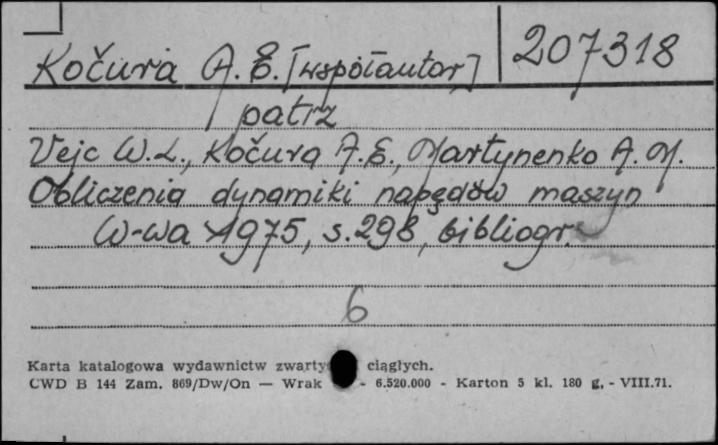 Kočura A.E. [współautor] 207318
patrz
Vejc W.L., Kočura A.E., Martynenko A.M.
Obliczenia dynamiki napędów maszyn
W-wa 1975, s. 298, bibliogr.
6
Karta katalogowa wydawnictw ciągłych.
CWD B 144 Zam. 869/Dw/On — Wrak - 6.520.000 - Karton 5 kl. 180 g, - VIII.71.